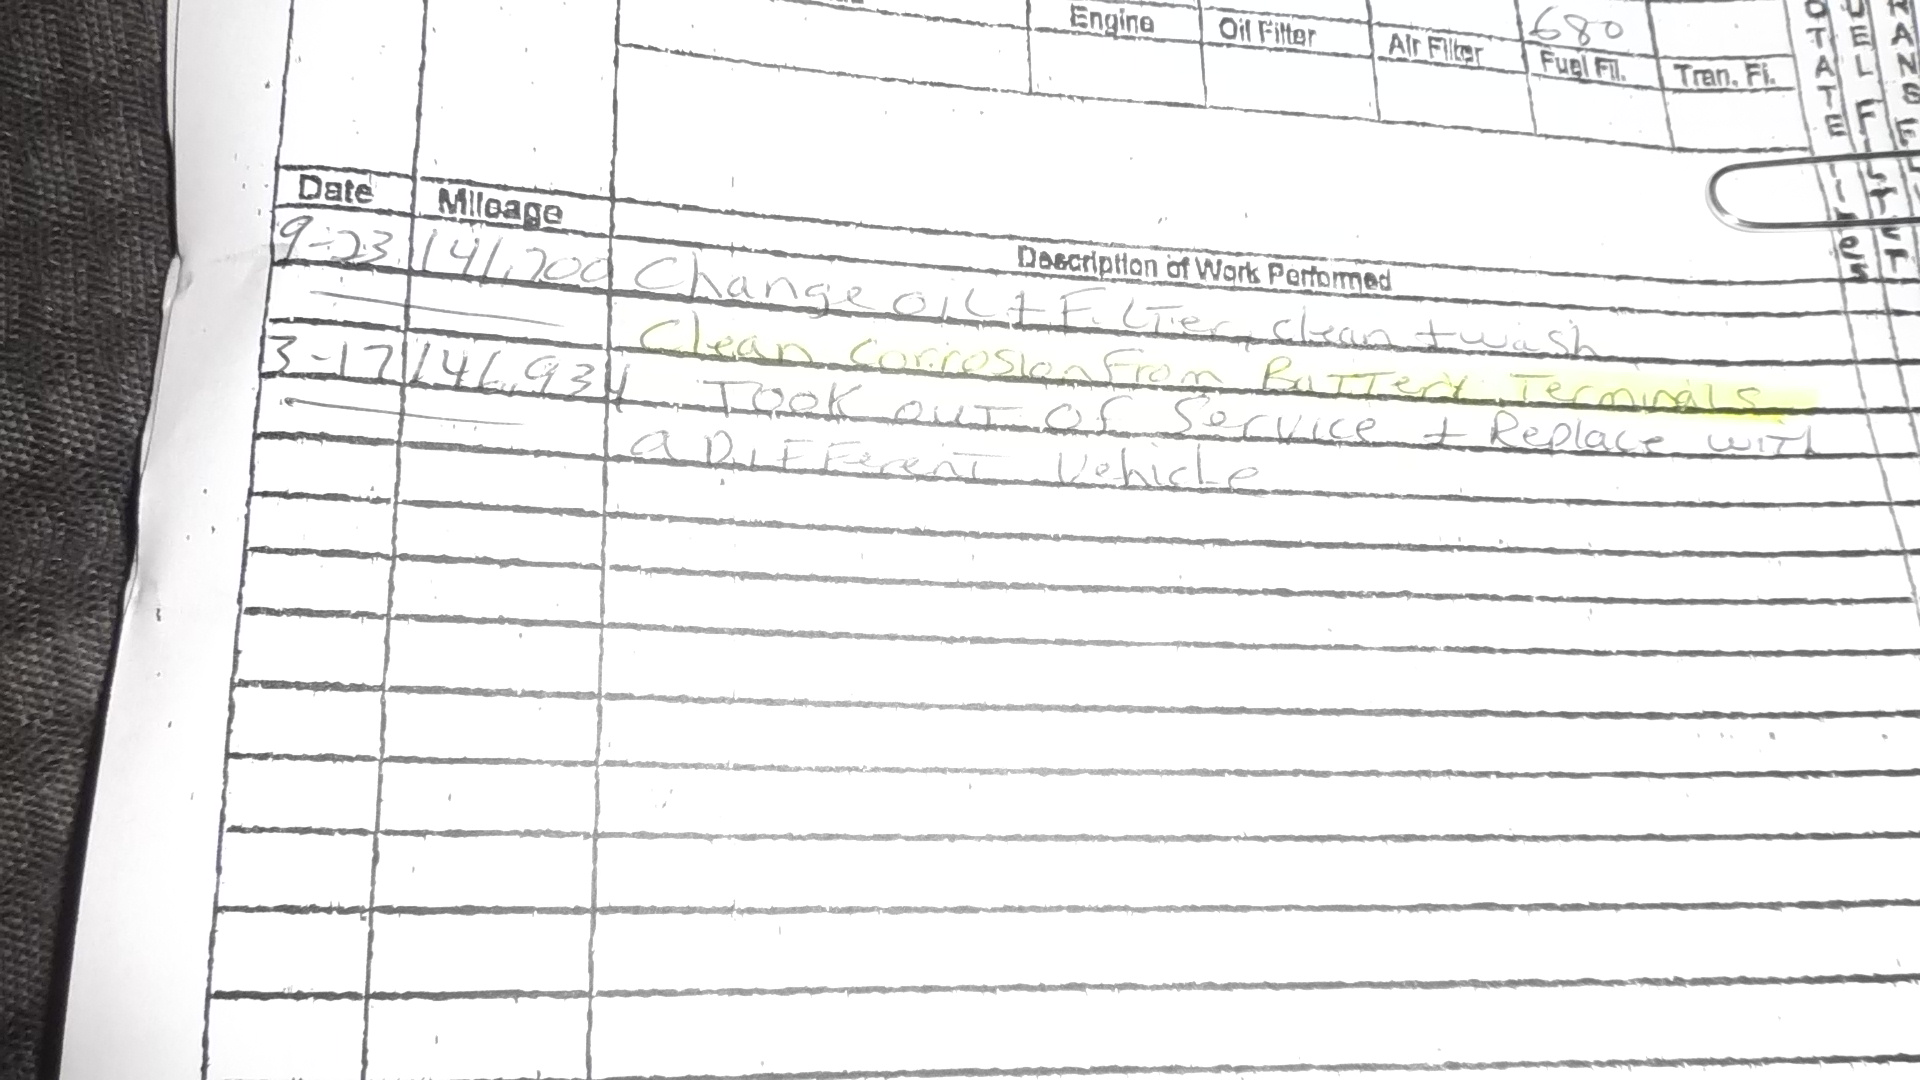 680
Engine Oil Filter Air Filter Fuel Fil. Tran. Fi.
Date Mileage Description of Work Performed
9-23 141,700 Change oil + Filter, clean + wash
Clean Corrosion From Battery Terminals
3-17 141,934 Took out of Service + Replace with
a Different Vehicle